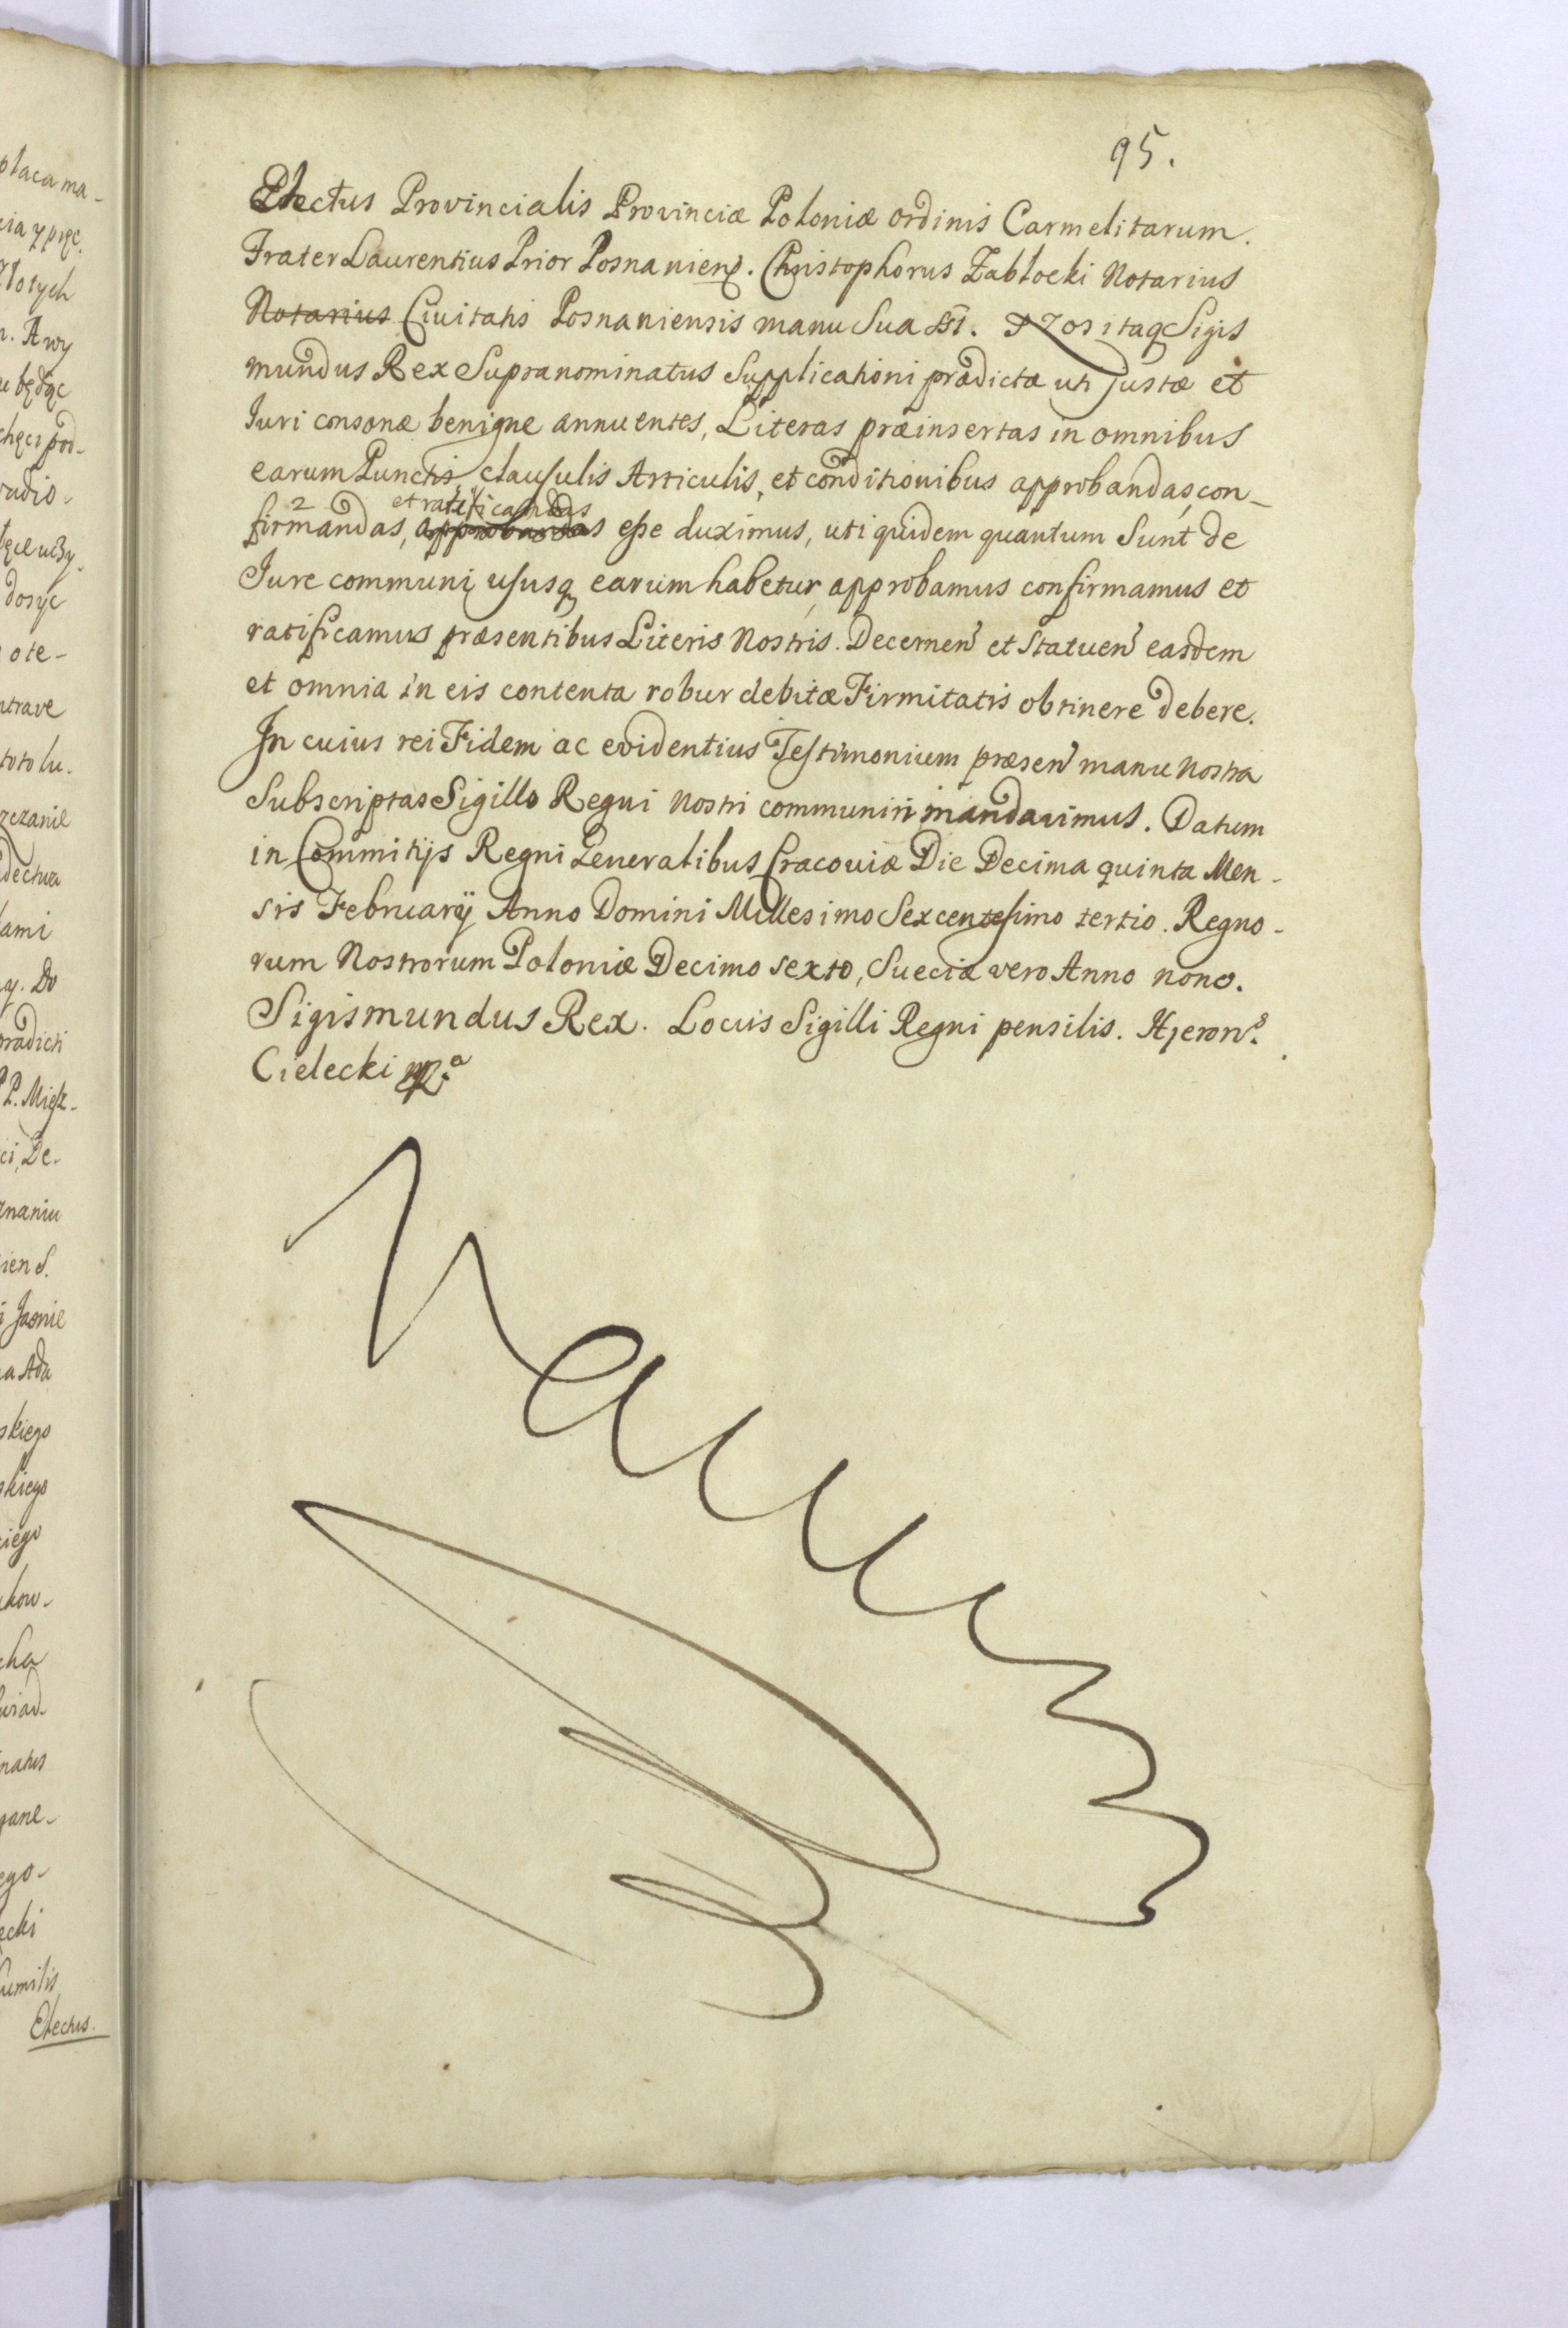 95.
Electus Provincialis Provinciæ Poloniæ ordinis Carmelitarum.
Frater Laurentius Prior Posnaniens. Christophorus Zabłocki Notarius
Notarius Civitatis Posnaniensis manu Sua sst. Nos itaq Sigis
mundus Rex Supranominatus Supplicationi prædictæ uti Justæ et
Iuri consonæ benigne annuentes, Literas præinsertas in omnibus
earum Punctis, clausulis Articulis, et conditionibus approbandas, con-
et ratificandas
firmandas, approbandas esse duximus, uti quidem quantum Sunt de
Jure communi, ususq earum habetur, approbamus confirmamus et
ratificamus præsentibus Literis Nostris. Decernen et Statuen easdem
et omnia in eis contenta robur debitæ Firmitatis obtinere debere.
In cuius rei Fidem ac evidentius Testimonium præsen manu Nostra
Subscriptas Sigillo Regni Nostri communiri mandavimus. Datum
in Commitijs Regni Generalibus Cracoviæ Die Decima quinta Men-
sis Februarij Anno Domini Millesimo Sexcentesimo tertio. Regno-
rum Nostrorum Poloniæ Decimo sexto, Sueciæ vero Anno nono.
Sigismundus Rex. Locus Sigilli Regni pensilis. Hieron.
Cielecki
płaca ma-
Złotych
n. A wy
będąc
chęci pod-
dosyć
ote-
ntrave
toto lu-
ami
y. Do
prædicti
ci, De-
znaniu
iens.
a Ada
skiego
skiego
kiego
cha
ego-
ecki
Electus.